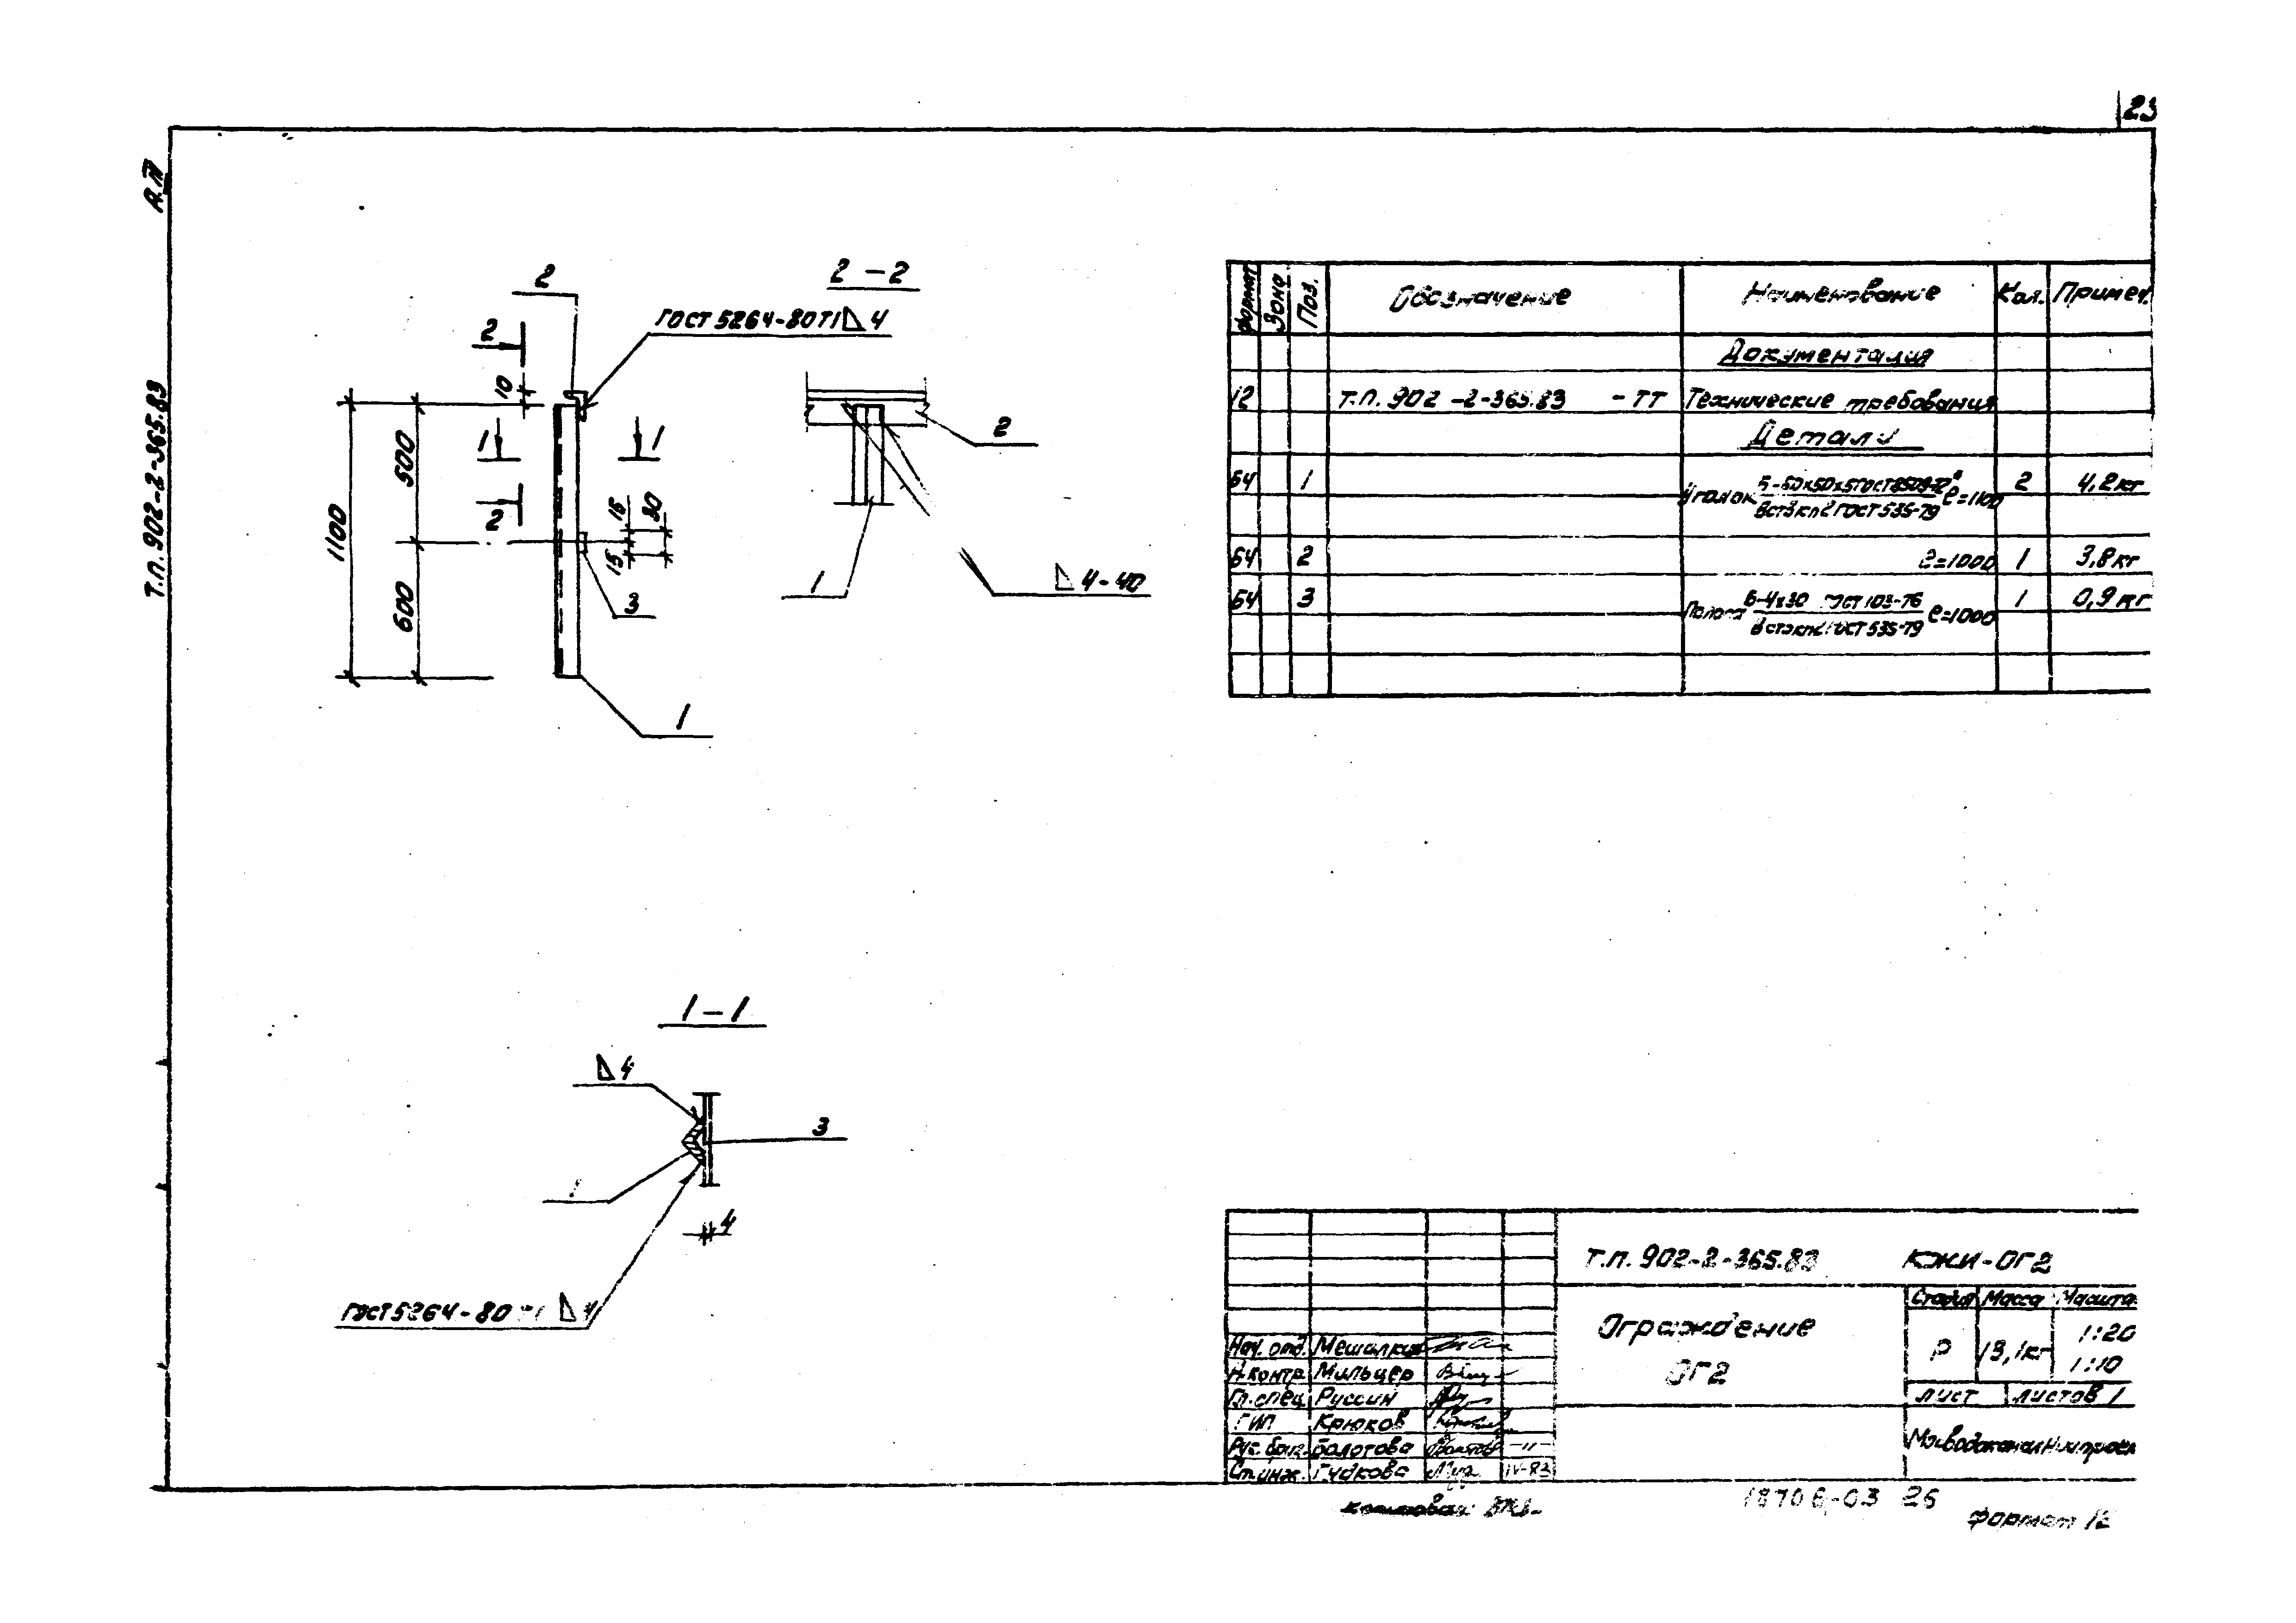 23
А.IV
Т.П. 902-2-365.83
2
2 - 2
ГОСТ 5264-80 Т1 4
2
10
1 1
2
500
1100
600
15
30
15
3
1
2
1
4-40
1 - 1
4
3
1
4
ГОСТ 5264-80 4
Формат Зона Поз. Обозначение Наименование Кол. Примеч.
Документация
12 Т.П. 902-2-365.83 - ТТ Технические требования
Детали
Б4 1 Уголок Б-50х50х5 ГОСТ 8509-72* ℓ=1100 2 4,2кг
ВСт3кп2 ГОСТ 535-79
Б4 2 ℓ=1000 1 3,8кг
Б4 3 Полоса Б-4х30 ГОСТ 103-76 ℓ=1000 1 0,9кг
ВСт3кп2 ГОСТ 535-79
Т.П. 902-2-365.83 КЖИ-ОГ2
Ограждение
ОГ2
Стадия Масса Масшта
Р 13,1кг 1:20
1:10
Лист Листов 1
Нач. отд. Мешалкин
Н.контр Мильцер
Гл.спец Руссин
ГИП Крюков
Рук. бриг. Болотова -"-
Ст.инж. Гудкова IV-83
МосводоканалНИИпроек
Копировал:
18706-03 26
Формат 12